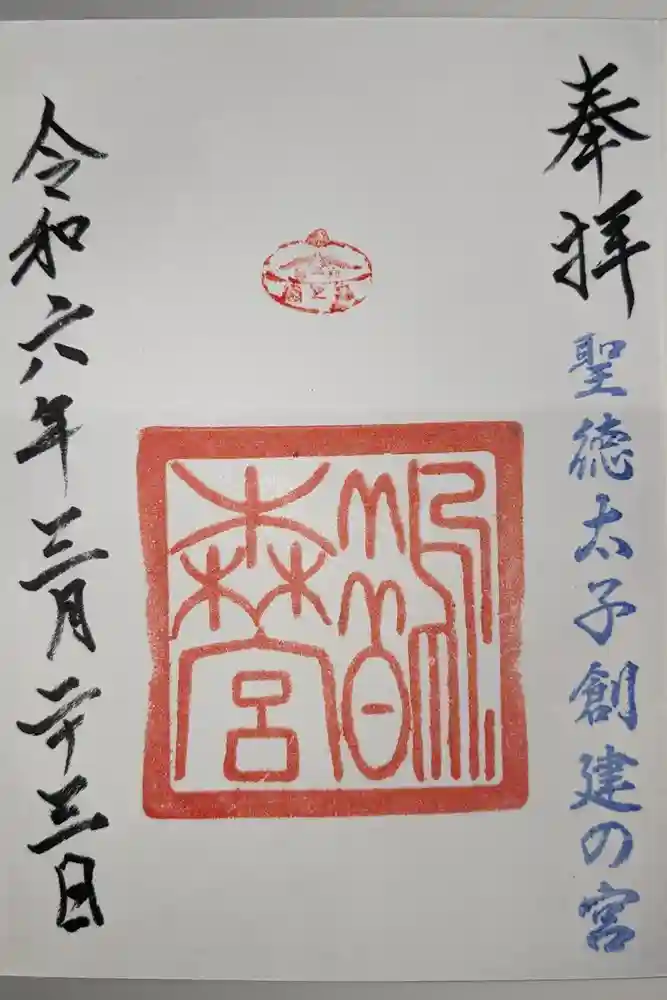 奉拝 聖徳太子創建の宮
鵲森宮
令和六年三月二十三日